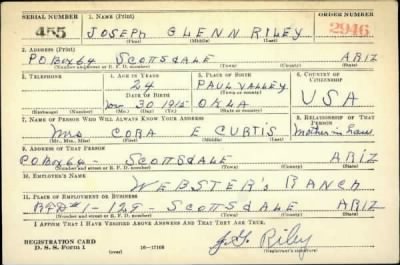 SERIAL NUMBER 1. NAME (Print) ORDER NUMBER
455 JOSEPH GLENN RILEY 2946
(First) (Middle) (Last)
2. ADDRESS (Print)
PO Box 64 SCOTTSDALE ARIZ
(Number and street or R. F. D. number) (Town) (County) (State)
3. TELEPHONE 4. AGE IN YEARS 5. PLACE OF BIRTH 6. COUNTRY OF CITIZENSHIP
24 PAUL VALLEY
DATE OF BIRTH (Town or county)
30 1915 OKLA USA
(Exchange) (Number) (Mo.) (Day) (Yr.) (State or country)
7. NAME OF PERSON WHO WILL ALWAYS KNOW YOUR ADDRESS 8. RELATIONSHIP OF THAT PERSON
Mrs CORA E CURTIS Mother in Law
(Mr., Mrs., Miss) (First) (Middle) (Last)
9. ADDRESS OF THAT PERSON
PO Box 64 - SCOTTSDALE ARIZ
(Number and street or R. F. D. number) (Town) (County) (State)
10. EMPLOYER'S NAME
WEBSTER'S RANCH
11. PLACE OF EMPLOYMENT OR BUSINESS
RFD#1- 129 - SCOTTSDALE ARIZ
(Number and street or R. F. D. number) (Town) (County) (State)
I AFFIRM THAT I HAVE VERIFIED ABOVE ANSWERS AND THAT THEY ARE TRUE.
REGISTRATION CARD
D. S. S. Form 1 16—17105 (Registrant's signature)
J.G. Riley